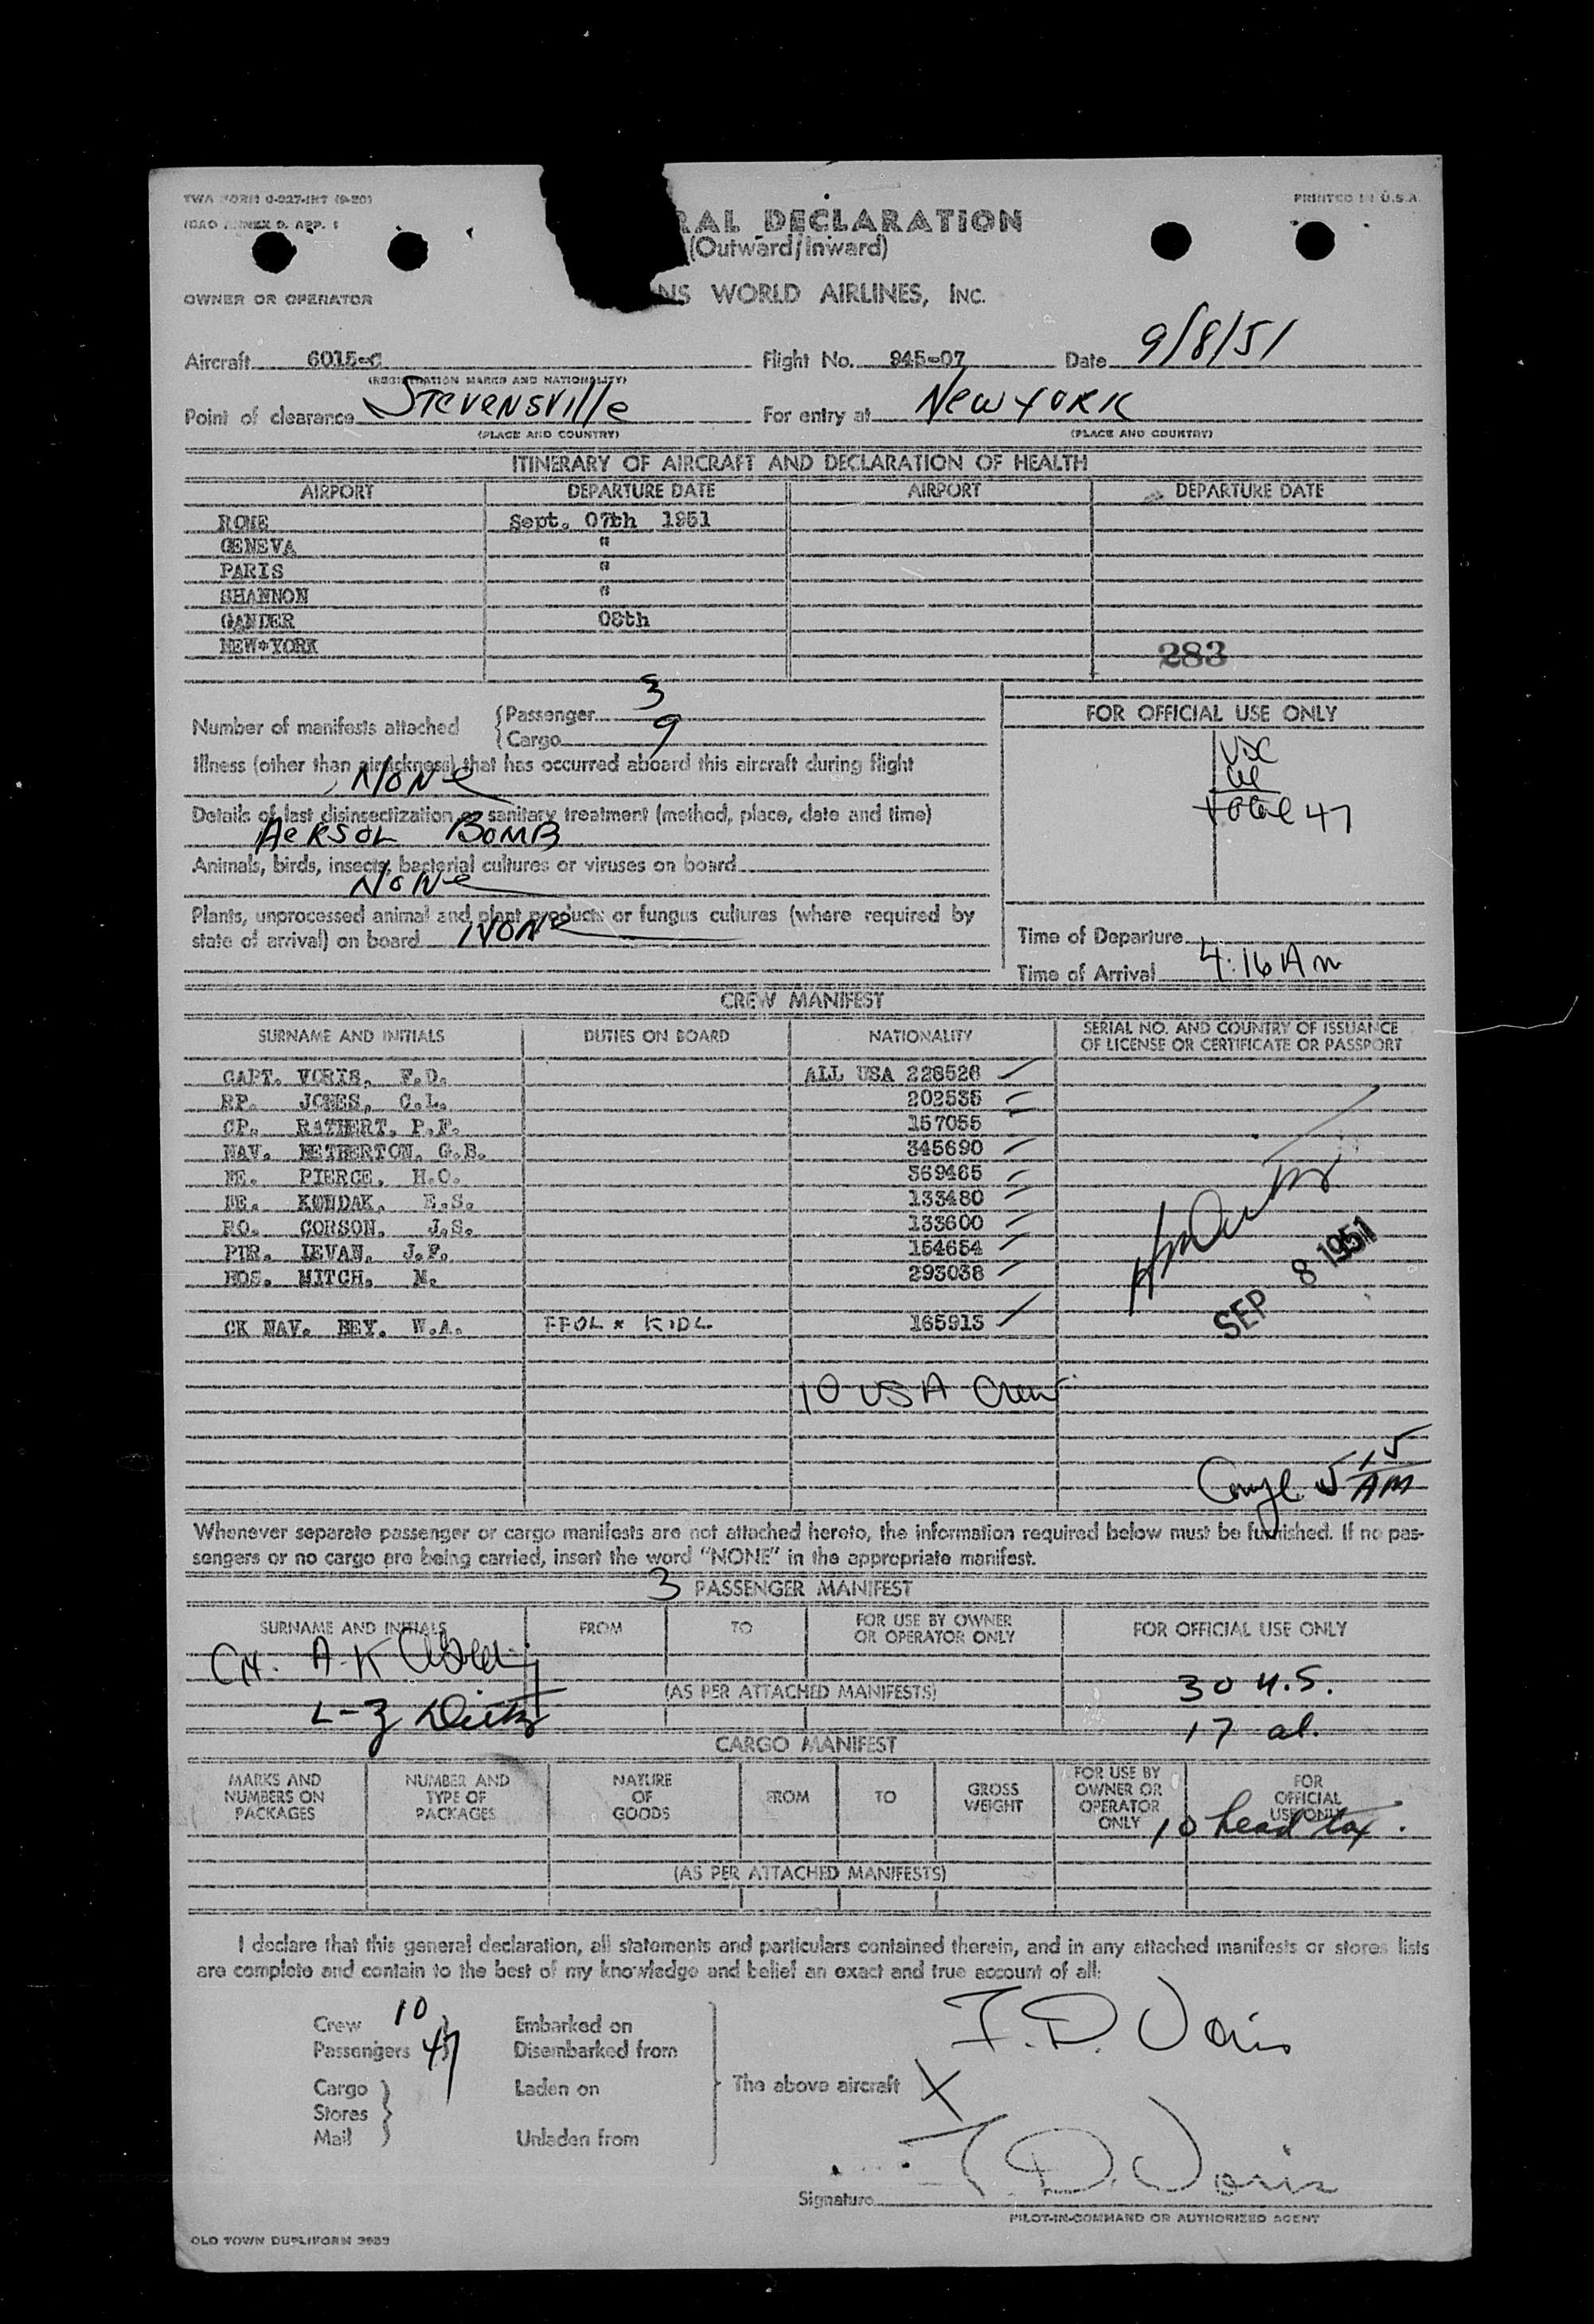 TWA FORM 0-027-INT (9-50)
PRINTED IN U.S.A.
ICAO ANNEX 9, APP. 1
RAL DECLARATION
(Outward/Inward)
OWNER OR OPERATOR
NS WORLD AIRLINES, INC.
Aircraft 6015-C Flight No. 945-07 Date 9/8/51
(REGISTRATION MARKS AND NATIONALITY)
Point of clearance Stevensville For entry at New York
(PLACE AND COUNTRY) (PLACE AND COUNTRY)
ITINERARY OF AIRCRAFT AND DECLARATION OF HEALTH
AIRPORT DEPARTURE DATE AIRPORT DEPARTURE DATE
ROME Sept. 07th 1951
GENEVA "
PARIS "
SHANNON "
GANDER 08th
NEW*YORK
283
Number of manifests attached { Passenger 3
Cargo 9
FOR OFFICIAL USE ONLY
Illness (other than airsickness) that has occurred aboard this aircraft during flight
None
Total 47
Details of last disinsectization or sanitary treatment (method, place, date and time)
Aersol Bomb
Animals, birds, insects, bacterial cultures or viruses on board
None
Plants, unprocessed animal and plant products or fungus cultures (where required by
state of arrival) on board None
Time of Departure
Time of Arrival 4:16 AM
CREW MANIFEST
SURNAME AND INITIALS DUTIES ON BOARD NATIONALITY SERIAL NO. AND COUNTRY OF ISSUANCE
OF LICENSE OR CERTIFICATE OR PASSPORT
CAPT. VORIS, F.D. ALL USA 228526
RP. JONES, C.L. 202535
CP. RATHERT, P.F. 157055
NAV. NETHERTON, G.B. 345690
FE. PIERCE, H.O. 369465
FE. KUNDAK, E.S. 133480
RO. CORSON, J.S. 133600
PUR. IEVAN, J.F. 154654
HOS. MITCH, N. 293038
SEP 8 1951
CK NAV. BEY. W.A. FFOL * KIDL 165913
10 USA Crew
5 15
AM
Whenever separate passenger or cargo manifests are not attached hereto, the information required below must be furnished. If no pas-
sengers or no cargo are being carried, insert the word "NONE" in the appropriate manifest.
3 PASSENGER MANIFEST
SURNAME AND INITIALS FROM TO FOR USE BY OWNER
OR OPERATOR ONLY FOR OFFICIAL USE ONLY
CH. A-K
(AS PER ATTACHED MANIFESTS) 30 U.S.
L-Z Dietz
17 al.
CARGO MANIFEST
MARKS AND
NUMBERS ON
PACKAGES
NUMBER AND
TYPE OF
PACKAGES
NATURE
OF
GOODS
FROM TO GROSS
WEIGHT
FOR USE BY
OWNER OR
OPERATOR
ONLY
FOR
OFFICIAL
USE ONLY
10 head tax.
(AS PER ATTACHED MANIFESTS)
I declare that this general declaration, all statements and particulars contained therein, and in any attached manifests or stores lists
are complete and contain to the best of my knowledge and belief an exact and true account of all:
Crew 10 Embarked on
Passengers 47 Disembarked from
F. D. Voris
Cargo Laden on The above aircraft X
Stores
Mail Unladen from
F. D. Voris
Signature
PILOT-IN-COMMAND OR AUTHORIZED AGENT
OLD TOWN DUPLIFORM 3633